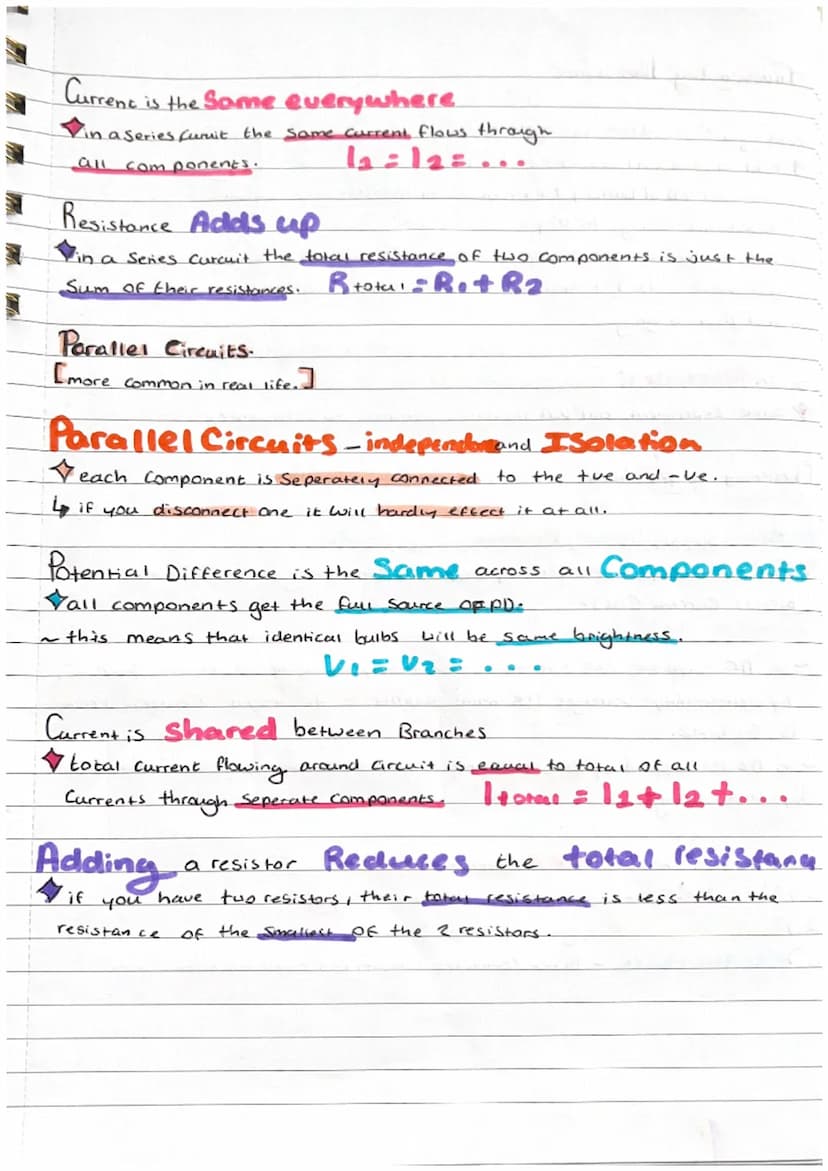 Current is the Same everywhere
in a series curuit the same current flows through
all components. I1 = I2 = ...
Resistance Adds up
in a Series curcuit the total resistance of two components is just the
Sum of their resistances. R total = R1 + R2
Parallel Circuits.
[more common in real life.]
Parallel Circuits - independance and Isolation
each component is Seperately connected to the +ve and -ve.
↳ if you disconnect one it will hardly effect it at all.
Potential Difference is the Same across all Components
all components get the full source of PD.
~ this means that identical bulbs will be same brightness.
V1 = V2 = ...
Current is Shared between Branches
total current flowing around circuit is equal to total of all
Currents through Seperate components. Itotal = I1 + I2 + ...
Adding a resistor Reduces the total resistanc
if you have two resistors, their total resistance is less than the
resistance of the smallest of the 2 resistors.